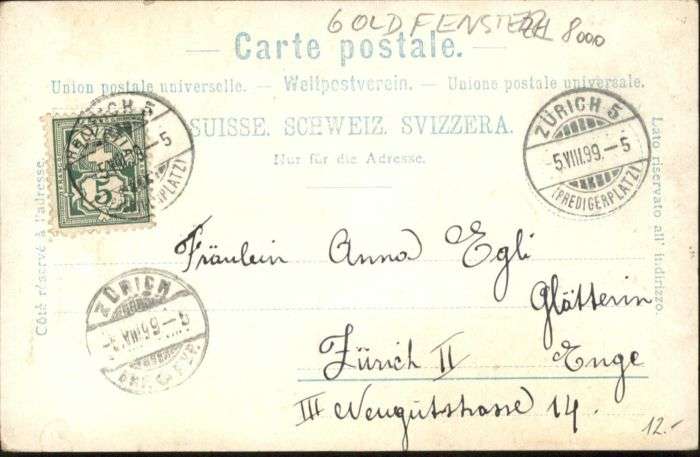 GOLDFENSTER ZH 8000
Carte postale.
Union postale universelle. – Weltpostverein. – Unione postale universale.
SUISSE. SCHWEIZ. SVIZZERA.
Nur für die Adresse.
Côté réservé à l'adresse.
Lato riservato all' indirizzo.
HELVETIA
5
ZÜRICH 5
– 5
(PREDIGERPLATZ)
ZÜRICH 5
5.VIII.99. – 5
(PREDIGERPLATZ)
ZÜRICH
Fräulein Anna Egli
Glätterin
Zürich II Enge
III Neugutstrasse 14.
12.-